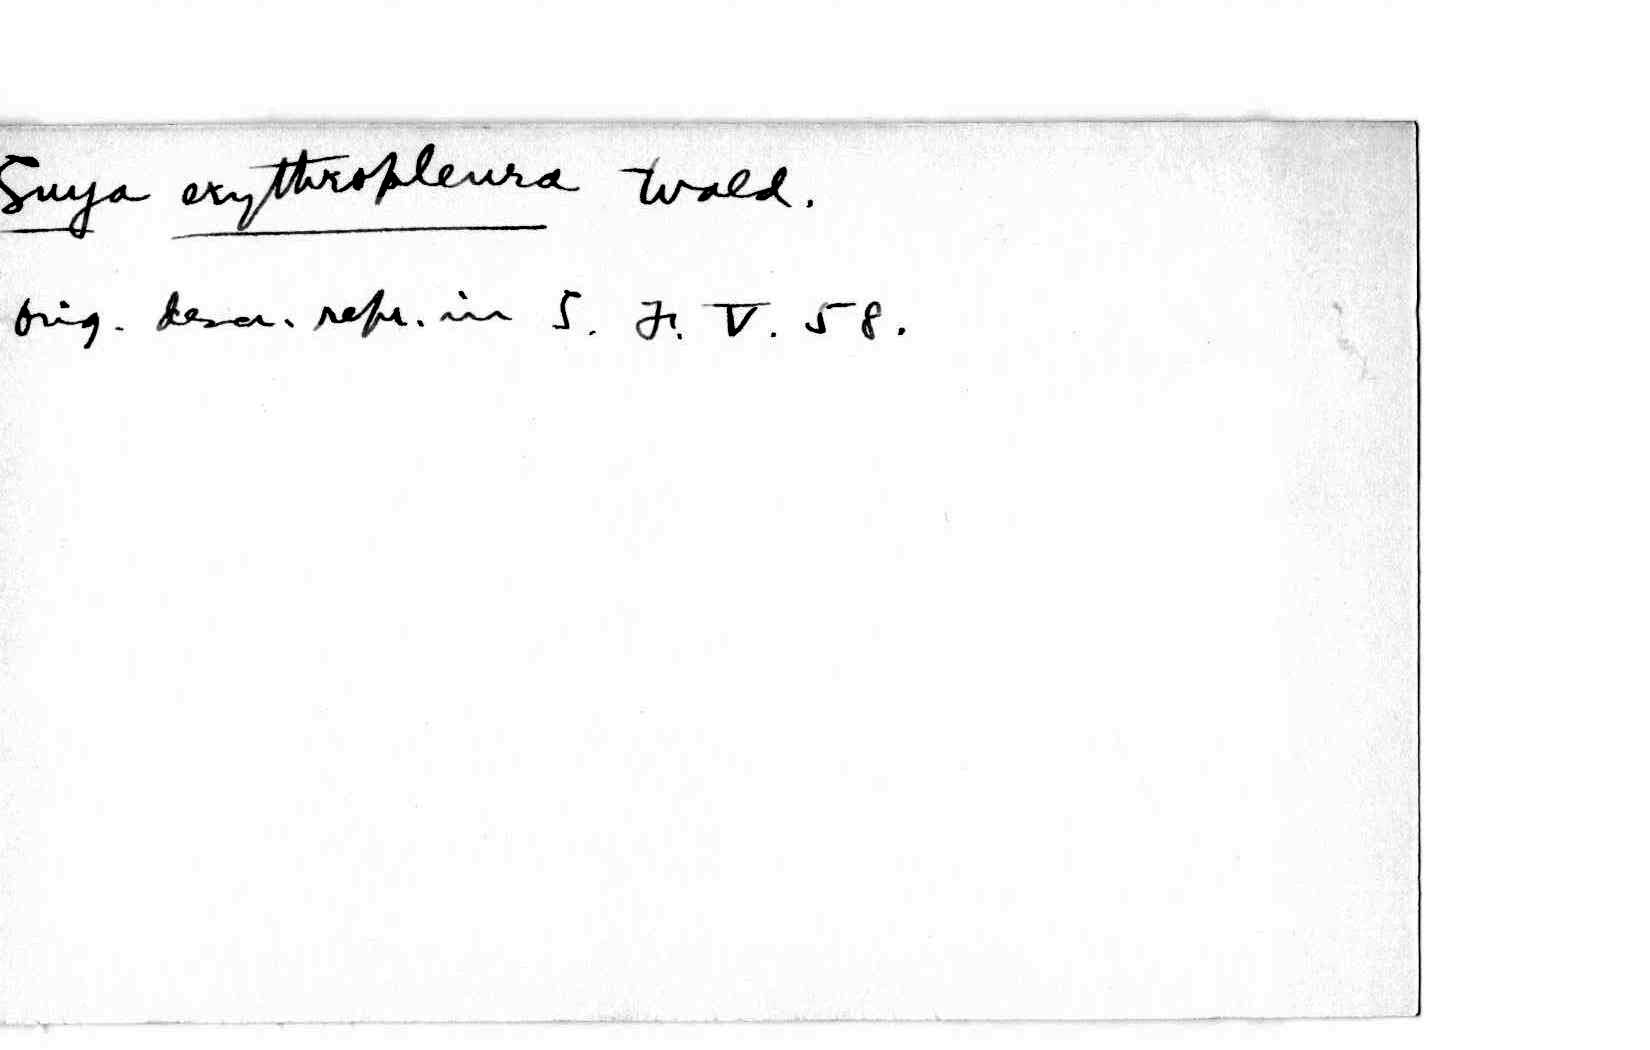 Suya erythropleura Wald.
Orig. descr. repr. in S. F. V. 58.